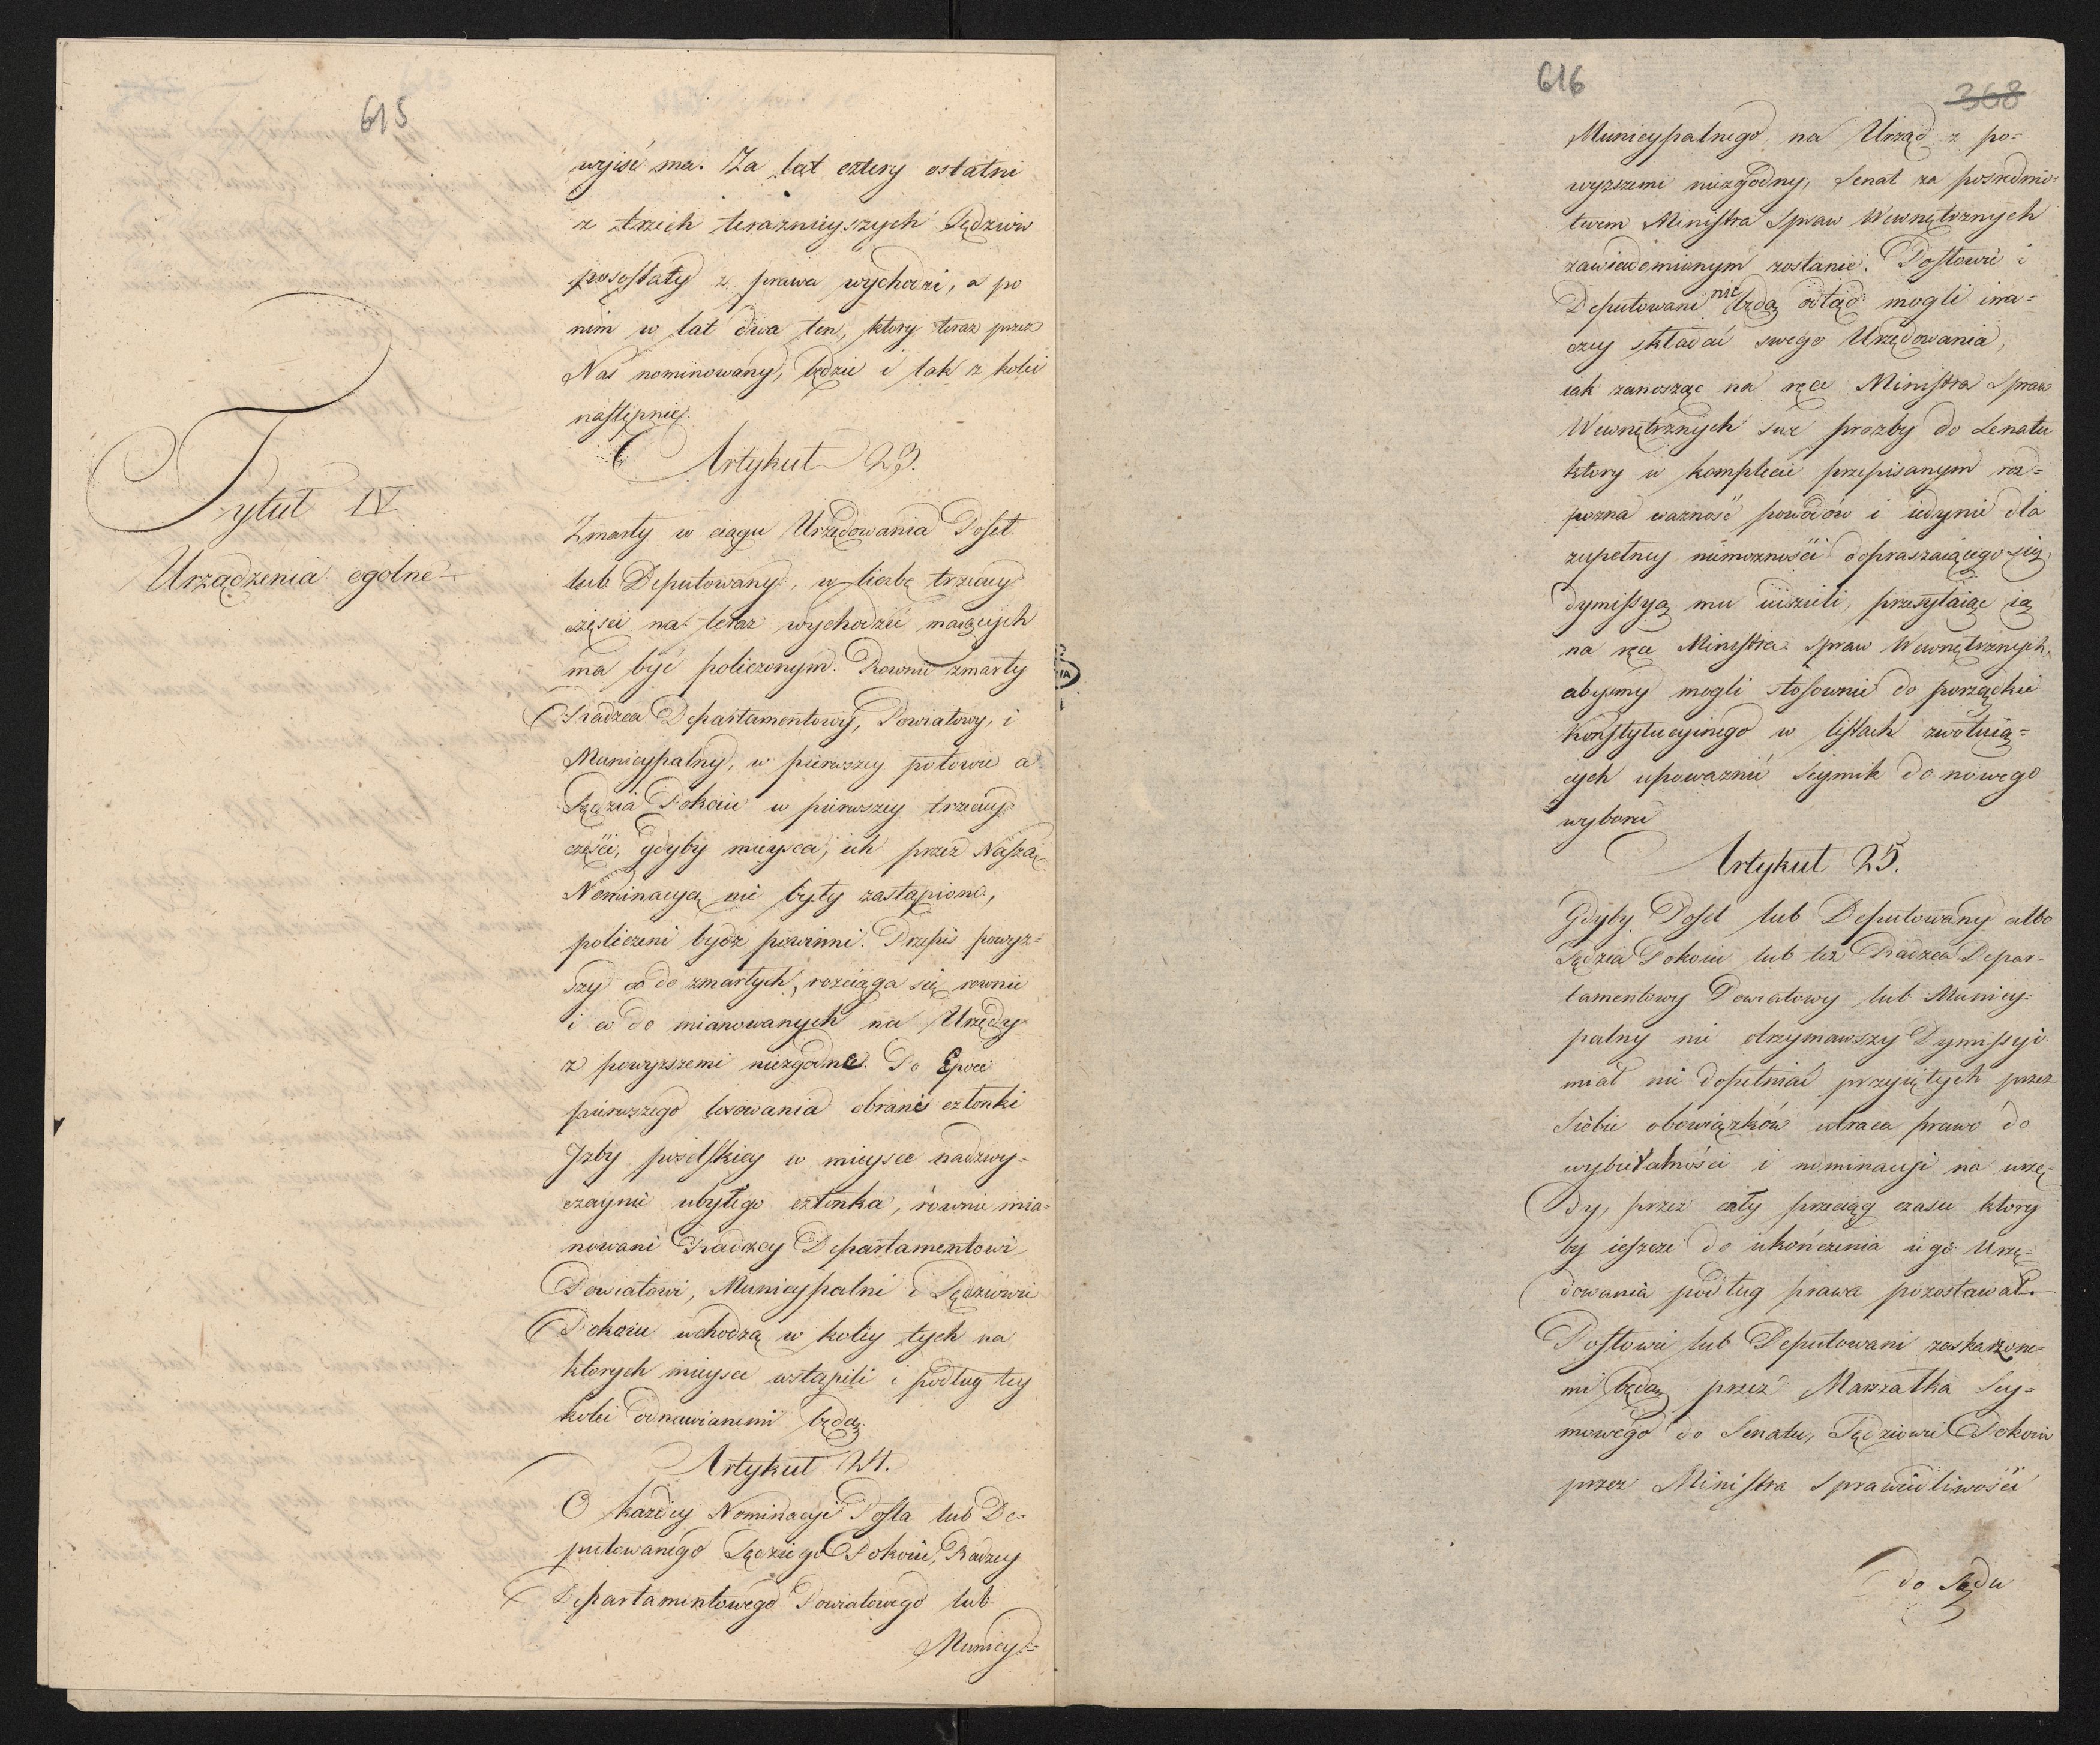 615
wyjść ma. Za lat cztery ostatni
z trzech teraznieyszych Sędziów
pozostały z prawa wychodzi, a po
nim w lat dwa ten, ktory teraz przez
Nas nominowany, będzie i tak z kolei
następnie.
Artykuł 23.
Tytuł IV
Urządzenia ogolne
Zmarły w ciągu Urzędowania Poseł
lub Deputowany, w liczbę trzeciey
części na teraz wychodzić maiących
ma być policzonym. Rownie zmarły
Radzca Departamentowy, Powiatowy, i
Municypalny, w pierwszey połowie a
Sędzia Pokoiu w pierwszey trzeciey
części, gdyby mieysca, ich przez Naszą
Nominacyą nie były zastąpione,
policzeni bydź powinni. Przepis powyż=
szy co do zmarłych, rozciąga się rownie
i co do mianowanych na Urzędy
z powyższemi niezgodne. Po Epoce
pierwszego losowania obrane członki
Jzby poselskiey w mieysce nadzwy=
czaynie ubyłego członka, rownie mia=
nowani Radzcy Departamentowi
Powiatowi, Municypalni i Sędziowie
Pokoiu wchodzą w koley tych na
ktorych mieysce wstąpili i podług tey
kolei odnawianemi będą.
Artykuł 24.
O każdey Nominacyi Posła lub De=
putowanego Sędziego Pokoiu, Radzcy
Departamentowego Powiatowego lub
Municy=
616
368
Municypalnego na Urząd z po=
wyższemi niezgodny, Senat za posrednic=
twem Ministra Spraw Wewnętrznych
zawiadomionym zostanie. Posłowie i
Deputowani nie będą odtąd mogli ina=
czey składać swego Urzędowania,
iak zanosząc na ręce Ministra Spraw
Wewnętrznych swe prozby do Senatu
ktory w komplecie przepisanym roz=
pozna ważność powodów i iedynie dla
zupełney niemożności dopraszaiącego się
dymissyą mu udzieli, przesyłaiąc ią
na ręce Ministra Spraw Wewnętrznych,
abyśmy mogli stosownie do porządku
Konstytucyinego w listach zwołuią=
cych upoważnić Seymik do nowego
wyboru
Artykuł 25.
Gdyby Poseł lub Deputowany albo
Sędzia Pokoiu lub też Radzca Depar=
tamentowy Powiatowy lub Municy=
palny nie otrzymawszy Dymissyi
miał nie dopełniać przyiętych przez
siebie obowiązków utraca prawo do
wybieralności i nominacyi na urzę=
dy, przez cały przeciąg czasu ktory
by ieszcze do ukończenia iego Urzę=
dowania podług prawa pozostawał.
Posłowie lub Deputowani zaskarżone=
mi będą przez Marszałka Sey=
mowego do Senatu, Sędziowie Pokoiu
przez Ministra Sprawiedliwości
do Sądu